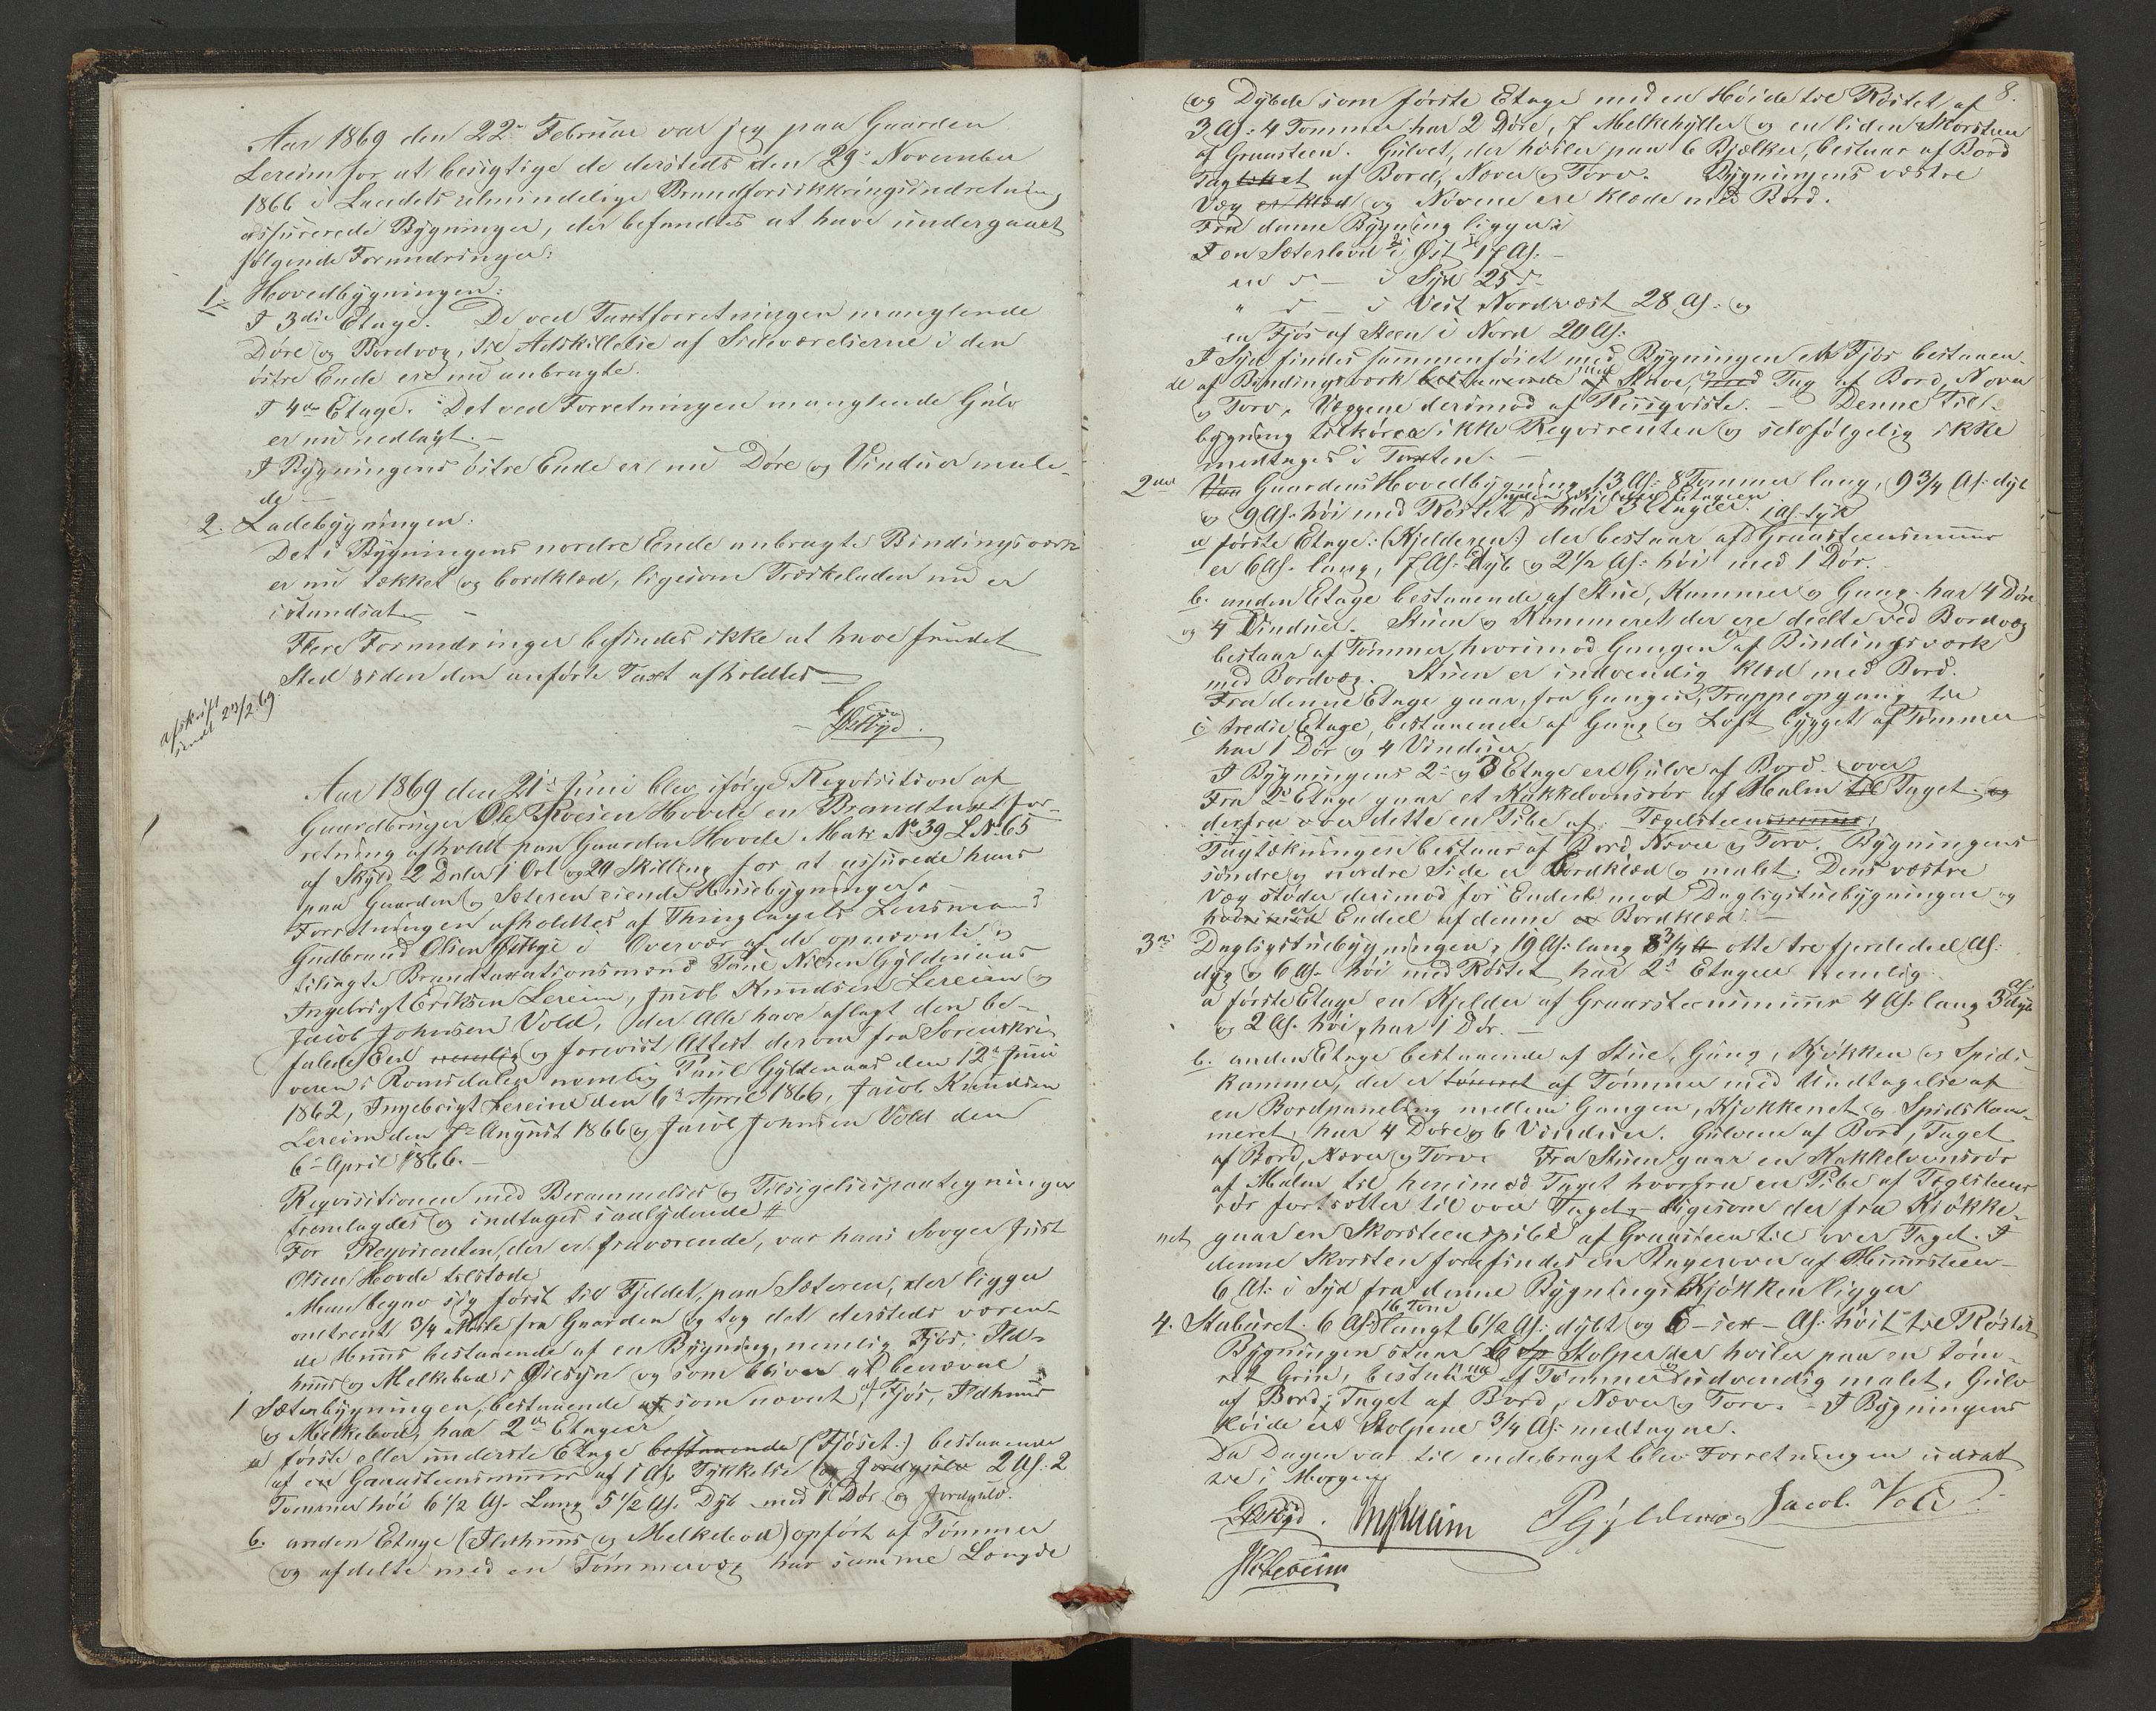 Aar 1869 den 22de Februar var jeg paa Gaarden
Lereim for at besigtige de dersteds den 29de November
1866 i Landets almindelige Brandforsikkringsindretning
assurerede Bygninger, der befandtes at have undergaaet
følgende Forandringer:
1. Hovedbygningen:
I 3die Etage. De ved Taxtforretningen manglende
Døre og Bordvæg, til Adskillelse af Sideværelserne i den
østre Ende ere nu anbragte.
I 4de Etage. Det ved Forretningen manglende Gulv
er nu nedlagt. –
I Bygningens østre Ende er nu Døre og Vinduer male-
de –
2. Ladebygningen:
Det i Bygningens nordre Ende anbragte Bindingsværk
er nu tækket og bordklæd, ligesom Træskeladen nu er
istandsat –
Flere Forandringer befindes ikke at have fundet
Sted siden den anførte Taxt afholdtes –
afskrift
sendt 23/2 69
G Østbye
Aar 1869 den 21de Juni blev ifølge Reqvisition af
Gaardbruger Ole Hovde en Brandtaxtfor-
retning afholdt paa Gaarden Hovde Matr No 39 L No 65
af Skyld 2 Daler 1 Ort og 24 Skilling for at assurede hans
paa Gaarden og Sæteren eiende Husebygninger.
Forretningen afholdtes af Thinglagets Lensmand
Gudbrand Olsen Østbye i Overvær af de opnævnte og
tilsagte Brandtaxationsmænd Paul Nilsen Gyldenaas
Ingebrigt Eriksen Lereim, Jacob Knudsen Lereim og
Jacob Johnsen Vold, der Alle have aflagt den be-
falede Eed nemlig og forevist Attest derom fra Sorenskri-
veren i Romsdalen nemlig Paul Gyldenaas den 12te Juni
1862, Ingebrigt Lereim den 6te April 1866, Jacob Knudsen
Lereim den 7de August 1866 og Jacob Johnsen Vold den
6te April 1866. –
Reqvisitionen med Berammelses og Tilsigelsespaategninger
fremlagdes og indtages saalydende #
For Reqvirenten, der er fraværende, var hans Svoger Just
Olsen Hovde tilstede
Man begav sig først til Fjeldet, paa Sæteren, der ligger
omtrent 3/4 Mile fra Gaarden og tog det dersteds væren-
de Huus bestaaende af en Bygning, nemlig Fjøs, Ild-
huus og Melkebod i Øiesyn og som bliver at benævne
1 Sæterbygningen, bestaaende af som nævnt af Fjøs, Ildhuus
og Melkebod, har 2de Etager
a første eller underste Etage bestaaende (Fjøset:) bestaaende
af en Graasteensmuur af 1 Al. Tykkelse og Jordgulv 2 Al: 2
Tommer høi 6 1/2 Al. Lang 5 1/2 Al. Dyb med 1 Dør og Jordgulv.
b. anden Etage (Ildhuus og Melkebod) opført af Tømmer
og afdelte med en Tømmervæg har samme Længde
8.
og Dybde som første Etage med en Høide til Røstet af
3 Al: 4 Tommer har 2 Døre, 7 Melkehylder og en liden Skorsteen
af Graasteen. Gulvet, der hviler paa 6 Bjelker, bestaar af Bord
Tagtækket af Bord, Næver og Torv. Bygningens vestre
Væg er klæd og Növene ere klæde med Bord.
Fra denne Bygning ligger:
I en Sæterbod i Øst 17 Al: –
en d – i Syd 25 d –
" d – i Vest Nordvæst 28 Al: og
en Fjøs af Steen i Nord 20 Al:
I Syd findes sammenføiet med Bygningen et Fjøs bestaaen-
de af Bindingsværk bestaaende af med Stave, og med Tag af Bord, Næver
og Torv. Væggene derimod af Riisqviste. – Denne Til-
bygning tilhører ikke Reqvirenten og selvfølgelig ikke
medtages i Taxten. –
2den Vaa Gaardens Hovedbygning, 13 Al: 8 Tommer lang, 9 3/4 Al: dyb
og 9 Al. høi med Røstet har 3 Etager.
a første Etage: (Kjelderen:) der bestaar af 1 Al. tyk Graasteensmuur
er 6 Al. lang, 7 Al. dyb og 2 1/2 Al: høi med 1 Dør. –
b. anden Etage bestaaende af Stue, Kammer og Gang har 4 Døre
og 4 Vinduer. Stuen og Kammeret der ere deelte ved Bordvæg
bestaar af Tømmer, hvorimod Gangen er af Bindingsværk
med Bordvæg. Stuen er indvendig klæd med Bord.
Fra denne Etage gaar, fra Gangen, Trappeopgang til
c tredie Etage, bestaaende af Gang og Loft bygget af Tømmer
har 1 Dør og 4 Vinduer
I Bygningens 2de og 3 Etage ere Gulve af Bord.
Fra 2de Etage gaar et Kakkelovnsrør af Malm til over Taget og
derfra over dette en Pibe af Teglsteensmuur
Tagtækningen bestaar af Bord Næver og Torv. Bygningens
søndre og nordre Side er Bordklæd og malet. Dens vestre
Væg støder derimod for Endeel mod Dagligstuebygningen og
hvorimod en Endeel af denne er Bordklæd. –
3die Dagligstuebygningen, 19 Al: lang 8 3/4 otte tre fjerdedeel Al:
dyb og 6 Al. høi med Røstet har 2de Etager nemlig
a første Etage en Kjelder af Graasteensmuur 4 Al. lang 3 Al. dyb
og 2 Al. høi, har 1 Dør. –
b. anden Etage bestaaende af Stue, Gang, Kjøkken og Spids-
kammer, der er tømret af Tømmer med Undtagelse af
en Bordpaneling mellem Gangen, Kjøkkenet og Spidskam-
meret, har 4 Døre og 6 Vinduer. Gulvene af Bord, Taget
af Bord, Næver og Torv. Fra Stuen gaar en Kakkelovnsrør
af Malm til henimod Taget hvorfra en Pibe af Teglsteens
rør fortsætter til over Taget, – ligesom der fra Kjøkke-
net gaar en Skorsteenspibe af Graasteen til over Taget. I
denne Skorsten forefindes en Bagerovn af Muursteen –
6 Al. i Syd fra denne Bygnings Kjøkken ligger
4. Stabburet. 6 Al. 16 Tom langt 6 1/2 Al: dybt og 6 – sex – Al. høit til Røstet
Bygningen staar paa Stolper der hviler paa en tøm-
ret Grind, bestaaende af Tømmer og udvendig malet, Gulv
af Bord, Taget af Bord, Næver og Torv. – I Bygningens
Høide ere Stolpene 3/4 Al. medtagne.
Da Dagen var til endebragt blev Forretningen udsat
til i Morgen
G Østbye. Ing Lereim P Gyldenaas Jacob Vold
JK Lereim